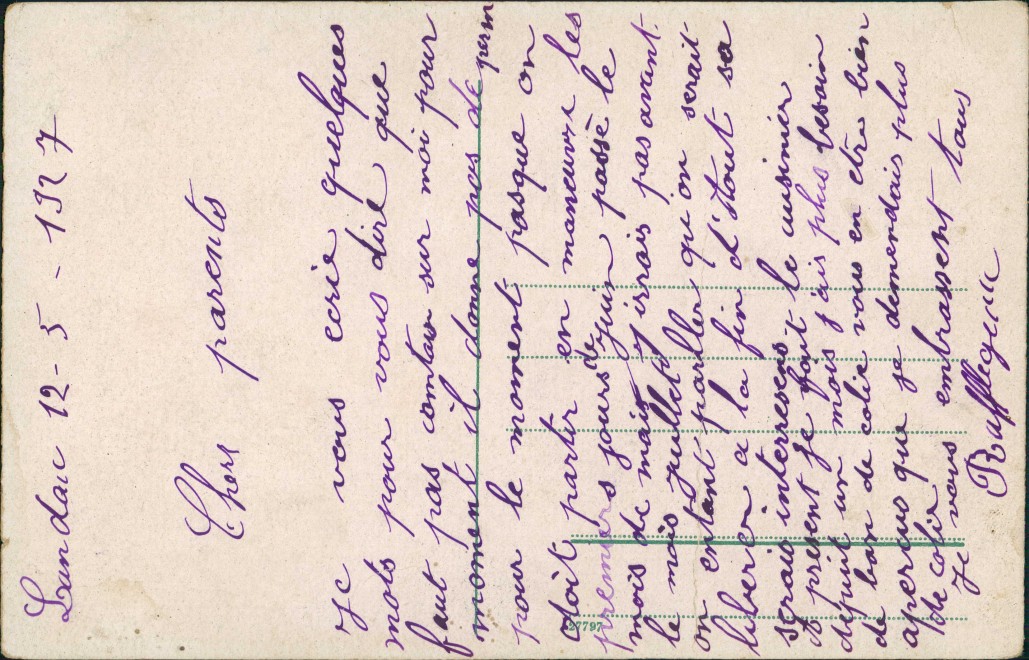 Landau 12 - 5 - 1927
Chers parents
Je vous ecrie quelques
mots pour vous dire que
faut pas contair sur moi pour
moment il done pas de perm
pour le moment pasque on
doit partir en maneuvre les
premiers jours de juin passè le
mois de mai j irrais pas avant
le mois juillet
on entant parller qu'on serait
liberer a la fin d'Aout sa
serais interresens
a present je fait le cuisinier
depuit un mois j'ais plus besoin
de bon de colie vous en etre bien
apercus que je demendais plus
de colie
Je vous embrassent tous
27797